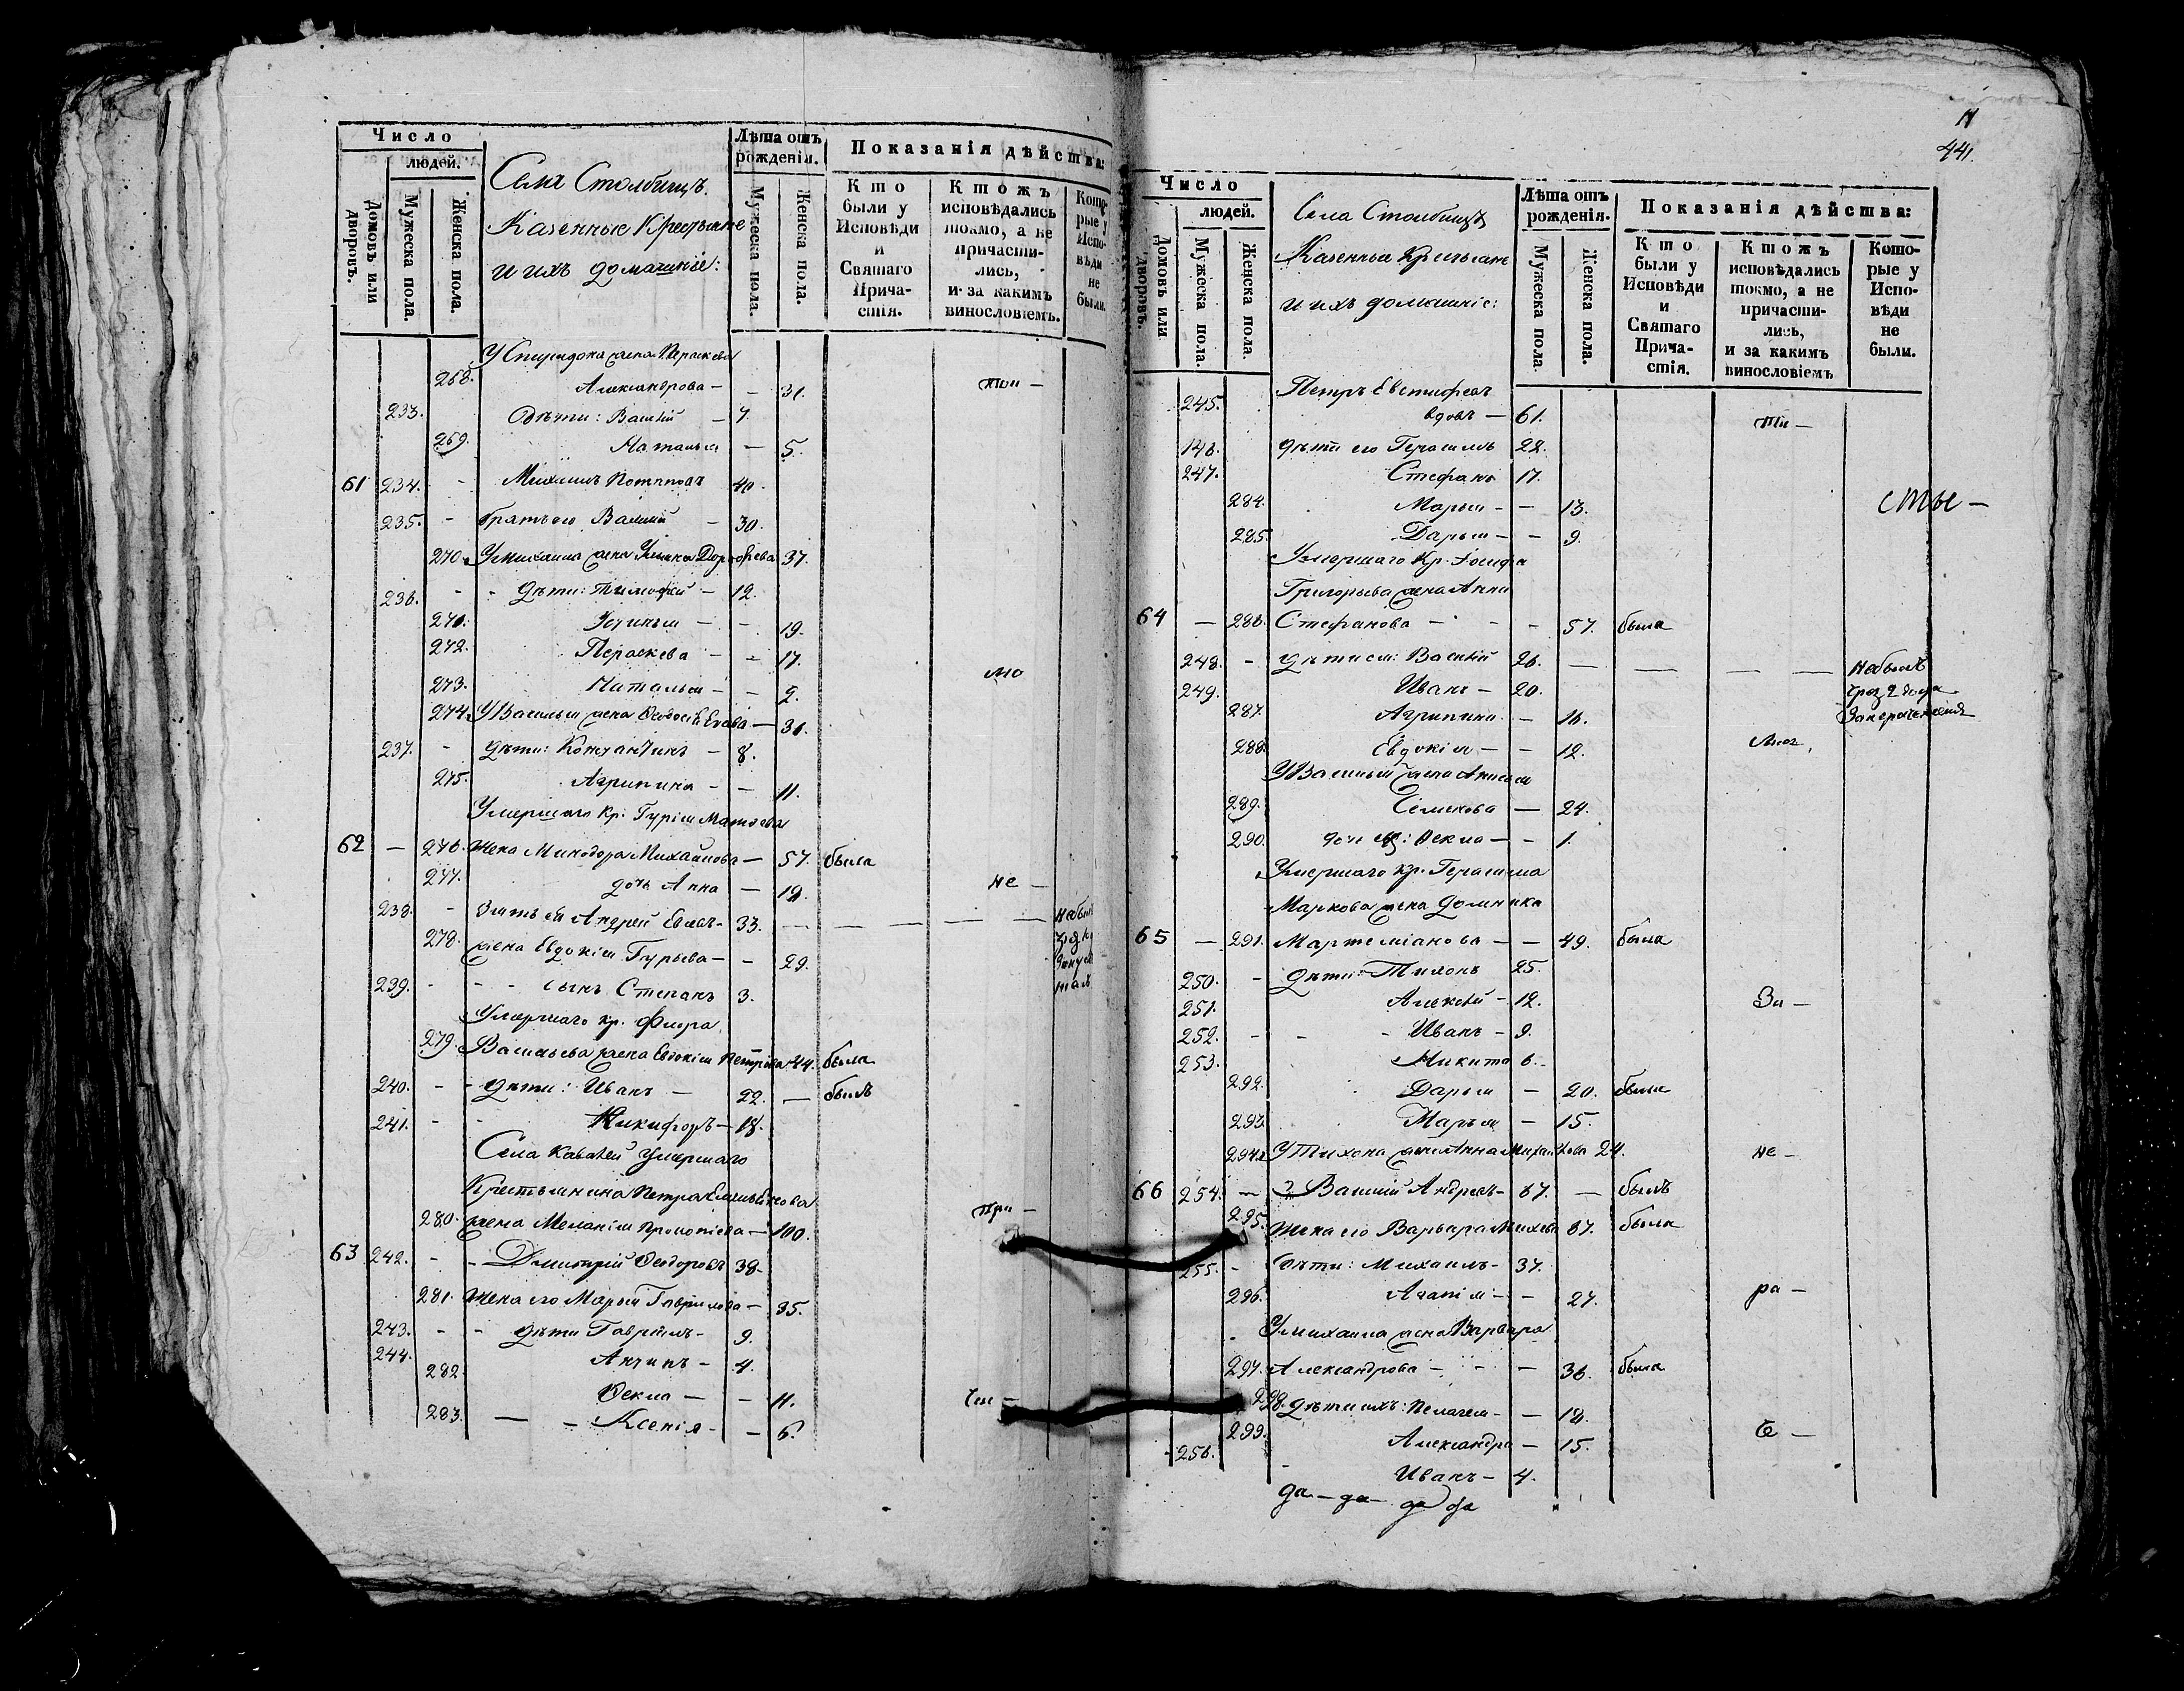 Число
людей.
Домовъ или дворовъ.
Мужеска пола.
Женска пола.
Села Столбищъ.
Казенные Крестьяне
и ихъ домашніе:
Лѣта отъ рожденія.
Мужеска пола.
Женска пола.
Показанія дѣйства:
Кто были у Исповѣди и Святаго Причастія.
Ктожъ исповѣдались токмо, а не причастились, и за какимъ винословіемъ.
Которые у Исповѣди не были.
У Спиридона жена Параскева
268. Александрова — — 31.
233. Дѣти: Василій — 7.
269. Наталья — 5.
61 234. - Михаилъ Потаповъ 40.
235. - братъ его Василій - 30.
270. У Михаила жена Ульяна Дорофеева 37.
236. - - дѣти: Тимофей - 12.
271. Устинья - - 19.
272. Параскева - - 17. мо
273. Наталья - - 2.
274. У Василья жена Ѳедосія — 31.
237. - дѣти: Константинъ - 8.
275. Агрипина - - 11.
Умершаго кр. Гурія Матвеева
62 — 276. жена Минодора Михайлова — 57. была
277. дочь Анна — 19. не —
238. - Зять ея Андрей - 33. — — — —
278. жена Евдокія Гурьева — - 29.
239. - - - сынъ Степанъ 3.
Умершаго кр. Флора
279. Васильева жена Евдокія Петрова 44. была
240. - - дѣти: Иванъ — 22. — былъ
241. - - Никифоръ — 18.
Села умершаго
Крестьянина Петра
280. жена Меланія Прокопіева — 100. при —
63 242. - - Дмитрій Ѳеодоровъ 38.
281. жена его Марья Гаврилова — 35.
243. - - дѣти Гаврилъ - 9.
244. Антипъ - 4.
282. Ѳекла — - 11.
283. — - Ксенія - - 6.
11
441.
Число
людей.
Домовъ или дворовъ.
Мужеска пола.
Женска пола.
Села Столбищъ
Казенныя Крестьяне
и ихъ домашніе:
Лѣта отъ рожденія.
Мужеска пола.
Женска пола.
Показанія дѣйства:
Кто были у Исповѣди и Святаго Причастія.
Ктожъ исповѣдались токмо, а не причастились, и за какимъ винословіемъ
Которые у Исповѣди не были.
Петръ Евстифеевъ
245. вдовъ — 61.
146. дѣти его Герасимъ 22.
247. Стефанъ 17.
284. Марья - - 13. сты —
285. Дарья — - 9.
Умершаго Кр. Іосифа
Григорьева жена Анна
64 — 286. Стефанова - - - 57. была
248. - дѣти ея: Василій 26. — — — — небылъ
249. Иванъ — 20.
287. Агрипина - 16.
288. Евдокія — - 12.
У Василья жена Анисья
289. Семенова — 24.
290. дочь ихъ: Ѳекла — - 1.
Умершаго кр. Герасима
Маркова жена Домника
65 — 291. Мартеміанова — - 49. была
250. - дѣти: Тихонъ 25.
251. Алексѣй - 12. За —
252. - - - Иванъ - 9.
253. Никита 6.
292. Дарья - 20. была
293. Марья - 15.
294. У Тихона жена Анна Михайлова 24. не —
66 254. — Василій Андреевъ - 67. — былъ
295. жена его Варвара 67. была
255. - Дѣти: Михаилъ - 37.
296. Агапія - - 27. ра —
У Михаила жена Варвара
297. Александрова - - - 36. была
298. Дѣти ихъ: Пелагея - - 18.
299. Александра — 15.
256. - Иванъ - 4.
да — да — да да